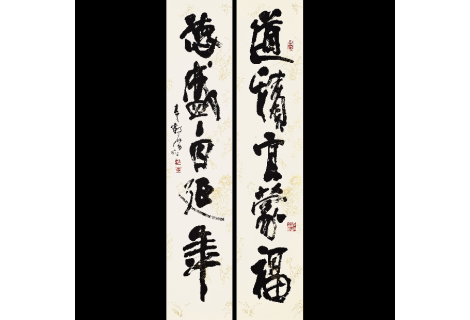 道積宜蒙福
德盛自延年